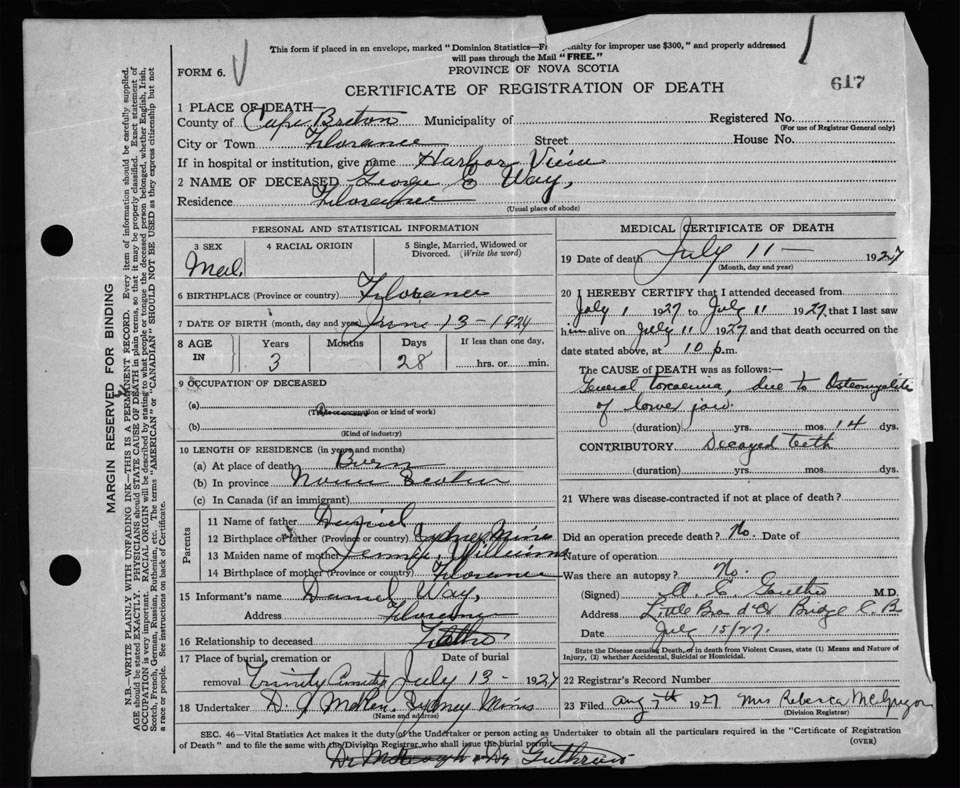 This form if placed in an envelope, marked "Dominion Statistics—Fr  enalty for improper use $300," and properly addressed
will pass through the Mail "FREE."
FORM 6.
PROVINCE OF NOVA SCOTIA
CERTIFICATE OF REGISTRATION OF DEATH
617
1 PLACE OF DEATH—
County of Cape Breton Municipality of Registered No.
(For use of Registrar General only)
City or Town Florance Street House No.
If in hospital or institution, give name Harbor View
2 NAME OF DECEASED George E Way,
Residence Florence
(Usual place of abode)
PERSONAL AND STATISTICAL INFORMATION
3 SEX 4 RACIAL ORIGIN 5 Single, Married, Widowed or Divorced. (Write the word)
Mal.
6 BIRTHPLACE (Province or country) Florance
7 DATE OF BIRTH (month, day and year) June 13-1924
8 AGE IN Years Months Days If less than one day,
3 28 hrs. or min.
9 OCCUPATION OF DECEASED
(a)
(Trade occupation or kind of work)
(b)
(Kind of industry)
10 LENGTH OF RESIDENCE (in years and months)
(a) At place of death Born
(b) In province Nova Scotia
(c) In Canada (if an immigrant)
Parents
11 Name of father Daniel
12 Birthplace of father (Province or country) Sydney Mines
13 Maiden name of mother Williams
14 Birthplace of mother (Province or country) Florance
15 Informant's name Daniel Way,
Address Florence
16 Relationship to deceased Father
17 Place of burial, cremation or Date of burial
removal Trinity Cemetery July 13- 1927
18 Undertaker D. J. Sydney Mines
(Name and address)
MEDICAL CERTIFICATE OF DEATH
19 Date of death July 11- 1927
(Month, day and year)
20 I HEREBY CERTIFY that I attended deceased from
July 1 1927 to July 11 1927, that I last saw
him alive on July 11 1927 and that death occurred on the
date stated above, at 10 p.m.
The CAUSE of DEATH was as follows:—
General toxaemia, due to Osteomyelitis
of lower jaw.
(duration) yrs. mos. 14 dys.
CONTRIBUTORY Decayed teeth
(duration) yrs. mos. dys.
21 Where was disease contracted if not at place of death?
Did an operation precede death? No. Date of
Nature of operation
Was there an autopsy? No.
(Signed) A. C. M.D.
Address Little Bra d'Or Bridge C B
Date July 15/27.
State the Disease causing Death, or in death from Violent Causes, state (1) Means and Nature of
Injury, (2) whether Accidental, Suicidal or Homicidal.
22 Registrar's Record Number
23 Filed Aug 7th 1927 Mrs Rebecca McGregor
(Division Registrar)
SEC. 46—Vital Statistics Act makes it the duty of the Undertaker or person acting as Undertaker to obtain all the particulars required in the "Certificate of Registration
of Death" and to file the same with the Division Registrar who shall issue the burial permit. (OVER)
MARGIN RESERVED FOR BINDING
N.B.—WRITE PLAINLY WITH UNFADING INK—THIS IS A PERMANENT RECORD. Every item of information should be carefully supplied.
AGE should be stated EXACTLY. PHYSICIANS should STATE CAUSE OF DEATH in plain terms, so that it may be properly classified. Exact statement of
OCCUPATION is very important. RACIAL ORIGIN will be described by stating to what people or tongue the deceased person belonged, whether English, Irish,
Scotch, French, German, Russian, Ruthenian, etc. The terms "AMERICAN" or "CANADIAN" SHOULD NOT BE USED as they express citizenship but not
a race or people. See instructions on back of Certificate.